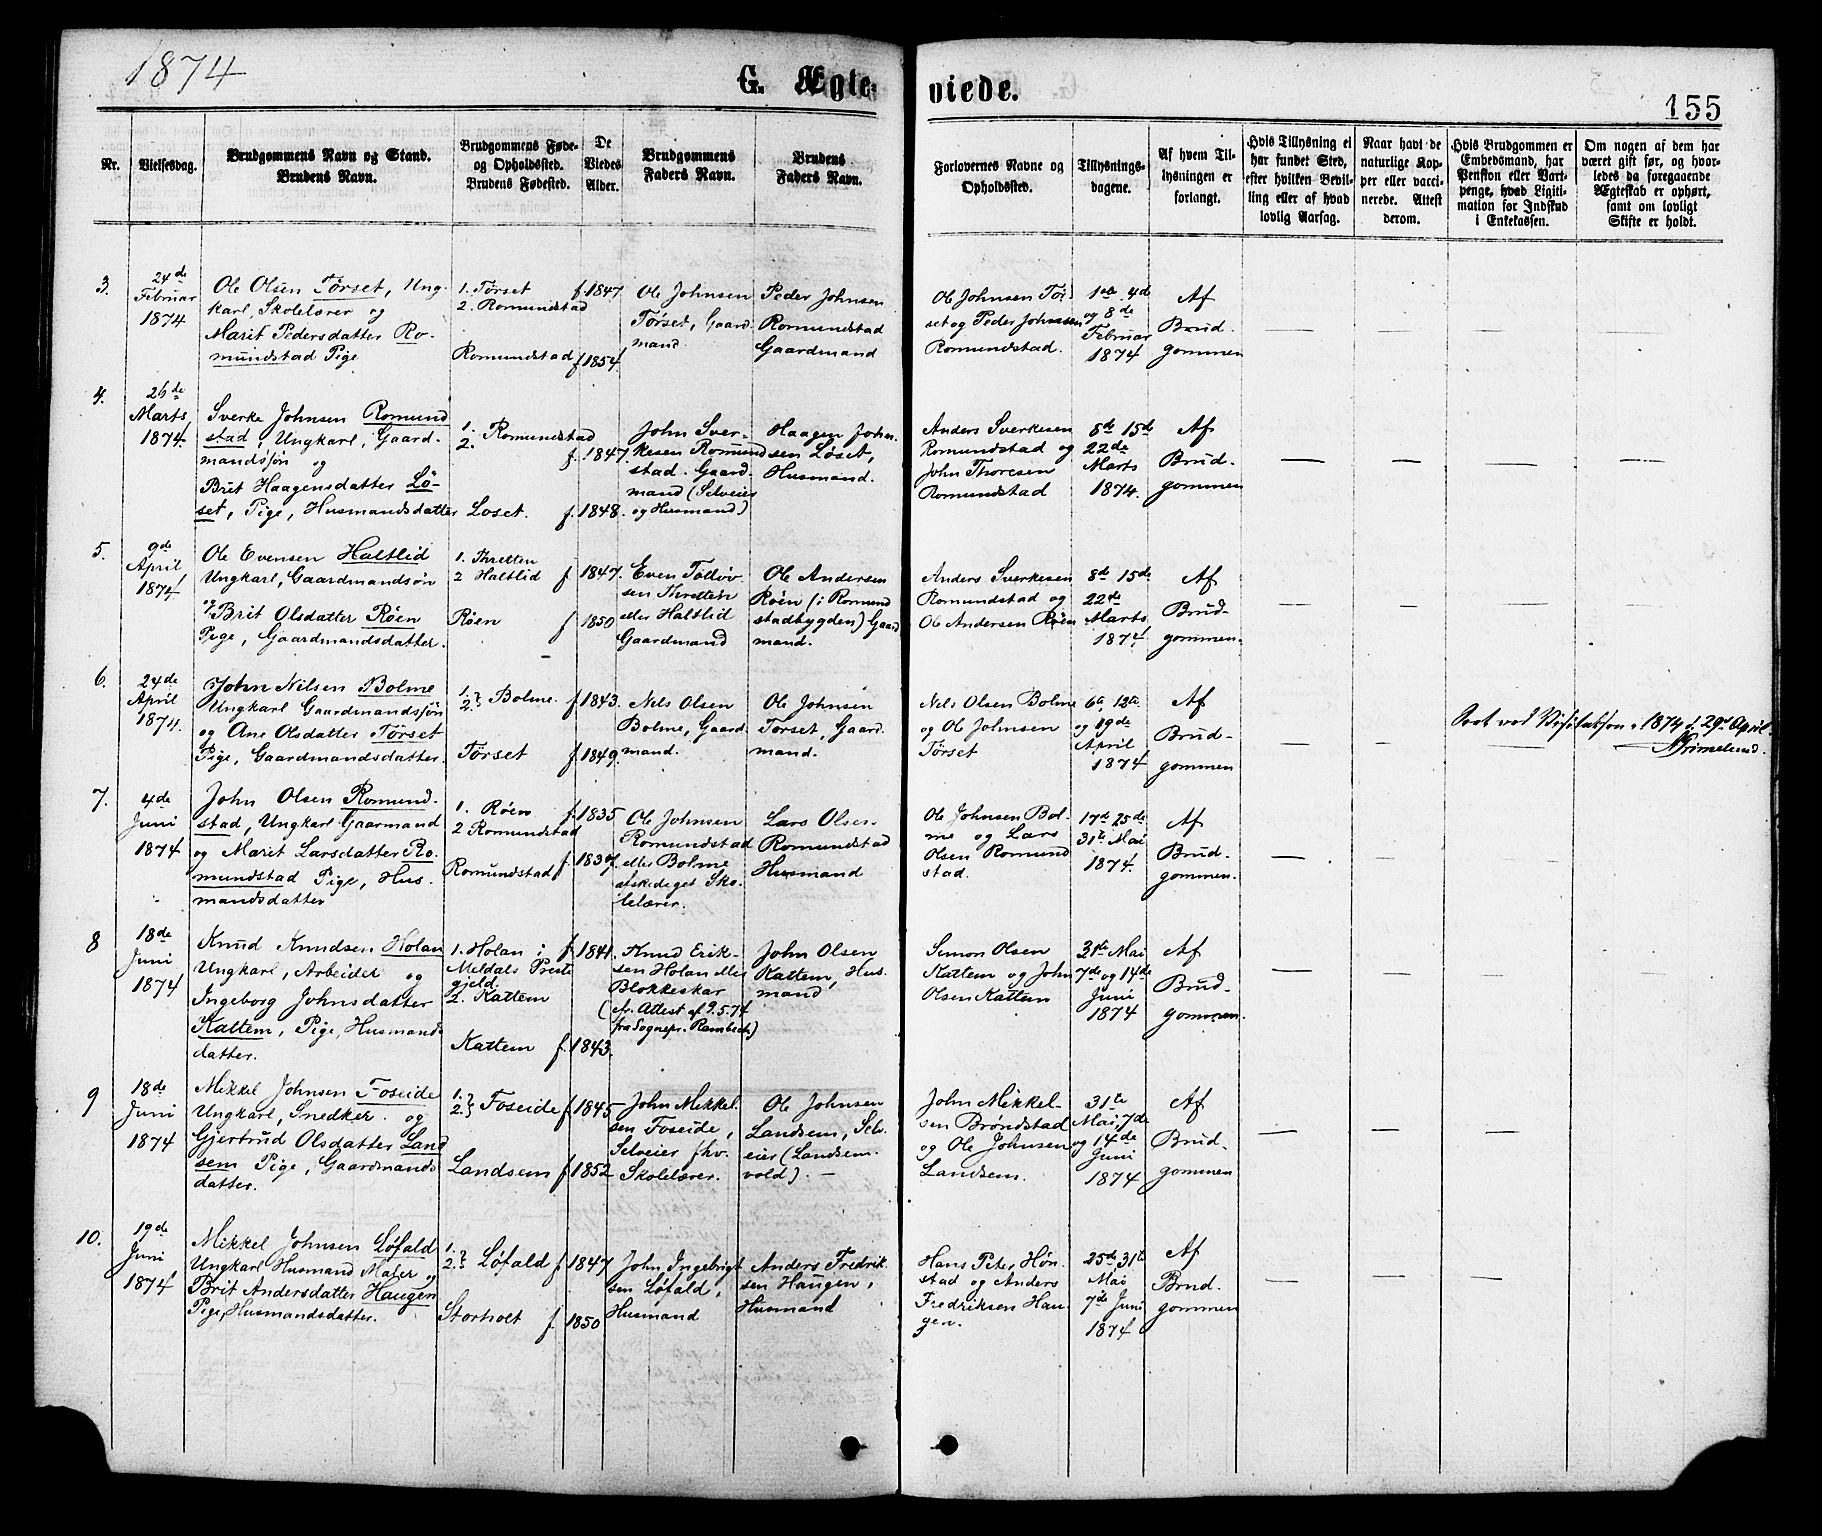 1874
G. Ægte-
viede.
155
Nr.
Vielsesdag.
Brudgommens Navn og Stand.
Brudens Navn.
Brudgommens Føde-
og Opholdssted.
Brudens Fødested.
De
Viedes
Alder.
Brudgommens
Faders Navn.
Brudens
Faders Navn.
Forlovernes Navne og
Opholdssted.
Tillysnings-
dagene.
Af hvem Til-
lysningen er
forlangt.
Hvis Tillysning ei
har fundet Sted,
efter hvilken Bevil-
ling eller af hvad
lovlig Aarsag.
Naar havt de
naturlige Kop-
per eller vacci-
nerede. Attest
derom.
Hvis Brudgommen er
Embedsmand, har
Pension eller Vart-
penge, hvad Ligiti-
mation for Indskud
i Enkekassen.
Om nogen af dem har
været gift før, og hvor-
ledes da foregaaende
Ægteskab er ophørt,
samt om lovligt
Skifte er holdt.
3.
24de
Februar
1874
Ole Olsen Tørset, Ung-
karl, Skolelærer og
Marit Pedersdatter Ro-
mundstad Pige
1. Tørset
2. Romundstad
Romundstad
f. 1847
f. 1854.
Ole Johnsen
Tørset, Gaard-
mand.
Peder Johnsen
Romundstad
Gaardmand
Ole Johnsen Tør-
set og Peder Johnsen
Romundstad.
1ste 4de
og 8de
Februar
1874
Af
Brud-
gommen
4.
26de
Marts
1874.
Sverke Johnsen Romund
stad, Ungkarl, Gaard-
mandsøn og
Brit Haagensdatter Lø-
set, Pige, Husmandsdatter
1.
2. Romundstad
Løset.
f. 1847.
f. 1848.
John Sver-
kesen Romund
stad. Gaard
mand (Selveier
og Husmand)
Haagen John-
sen Løset,
Husmand.
Anders Sverkesen
Romundstad og
John Thoresen
Romundstad
8de 15de
22de
Marts
1874.
Af
Brud-
gommen
5.
9de
April
1874
Ole Evensen Haltlid
Ungkarl, Gaardmandsøn
og Brit Olsdatter Røen
Pige, Gaardmandsdatter.
1. Thretten
2 Haltlid
Røen
f 1847.
f 1850
Even Tølløv-
sen Thretten
eller Haltlid
Gaardmand
Ole Andersen
Røen (i Romund
stadbygden) Gaard
mand.
Anders Sverkesen
Romundstad og
Ole Andersen Røen
8de 15de
22de
Marts
1874.
Af
Brud-
gommen.
6.
24de
April
1874.
John Nilsen Bolme
Ungkarl Gaardmandsøn
og Ane Olsdatter Tørset
Pige, Gaardmandsdatter.
1.
2. Bolme.
Tørset
f 1843.
f 1849.
Nels Olsen
Bolme, Gaard
mand.
Ole Johnsen
Tørset, Gaard-
mand.
Nels Olsen Bolme
og Ole Johnsen
Tørset
6te, 12te
og 19de
April
1874
Af
Brud-
gommen
1874 d. 29de April
Grimelund.
7.
4de
Juni
1874
John Olsen Romund-
stad, Ungkarl Gaarmand
og Marit Larsdatter Ro-
mundstad Pige, Hus-
mandsdatter
1. Røen
2 Romundstad
Romundstad
f. 1835
f. 1837.
Ole Johnsen
Romundstad
eller Bolme
afskediget Sko-
lelærer.
Lars Olsen
Romundstad
Husmand
Ole Johnsen Bol-
me og Lars
Olsen Romund
stad.
17de 25de
31te Mai
1874.
Af
Brud-
gommen.
8
18de
Juni
1874
Knud Knudsen Holan
Ungkarl, Arbeider og
Ingeborg Johnsdatter
Kattem, Pige, Husmands
datter.
1. Holan i
Meldals Preste
gjeld.
2. Kattem
Kattem
f. 1841.
f. 1843.
Knud Erik-
sen Holan eller
Blokkeskar
(cfr. Attest af 9.5.74
fra Sognepr. Rambech)
John Olsen
Kattem, Hus
mand
Simon Olsen
Kattem og John
Olsen Kattem
31te Mai
7de og 14de
Juni
1874
Af
Brud-
gommen.
9
18de
Juni
1874
Mikkel Johnsen Foseide
Ungkarl, Snedker. og
Gjertrud Olsdatter Land
sem Pige, Gaardmands
datter.
1.
2. Foseide
Landsem
f 1845
f 1852
John Mikkel-
sen Foseide,
Selveier fhv.
Skolelærer.
Ole Johnsen
Landsem, Selv-
eier (Landsem-
vold).
John Mikkel-
sen Brøndstad
og Ole Johnsen
Landsem.
31te
Mai, 7de
og 14de
Juni
1874
Af
Brud-
gommen
10.
19de
Juni
1874
Mikkel Johnsen Løfald
Ungkarl Husmand Maler og
Brit Andersdatter Haugen
Pige, Husmandsdatter.
1.
2. Løfald
Storholt
f 1847
f. 1850
John Ingebrigt
sen Løfald,
Husmand
Anders Fredrik
sen Haugen,
Husmand
Hans Peter Høn-
stad og Anders
Fredriksen Hau-
gen.
25de 31te
Mai
7de Juni
1874
Af
Brud-
gommen